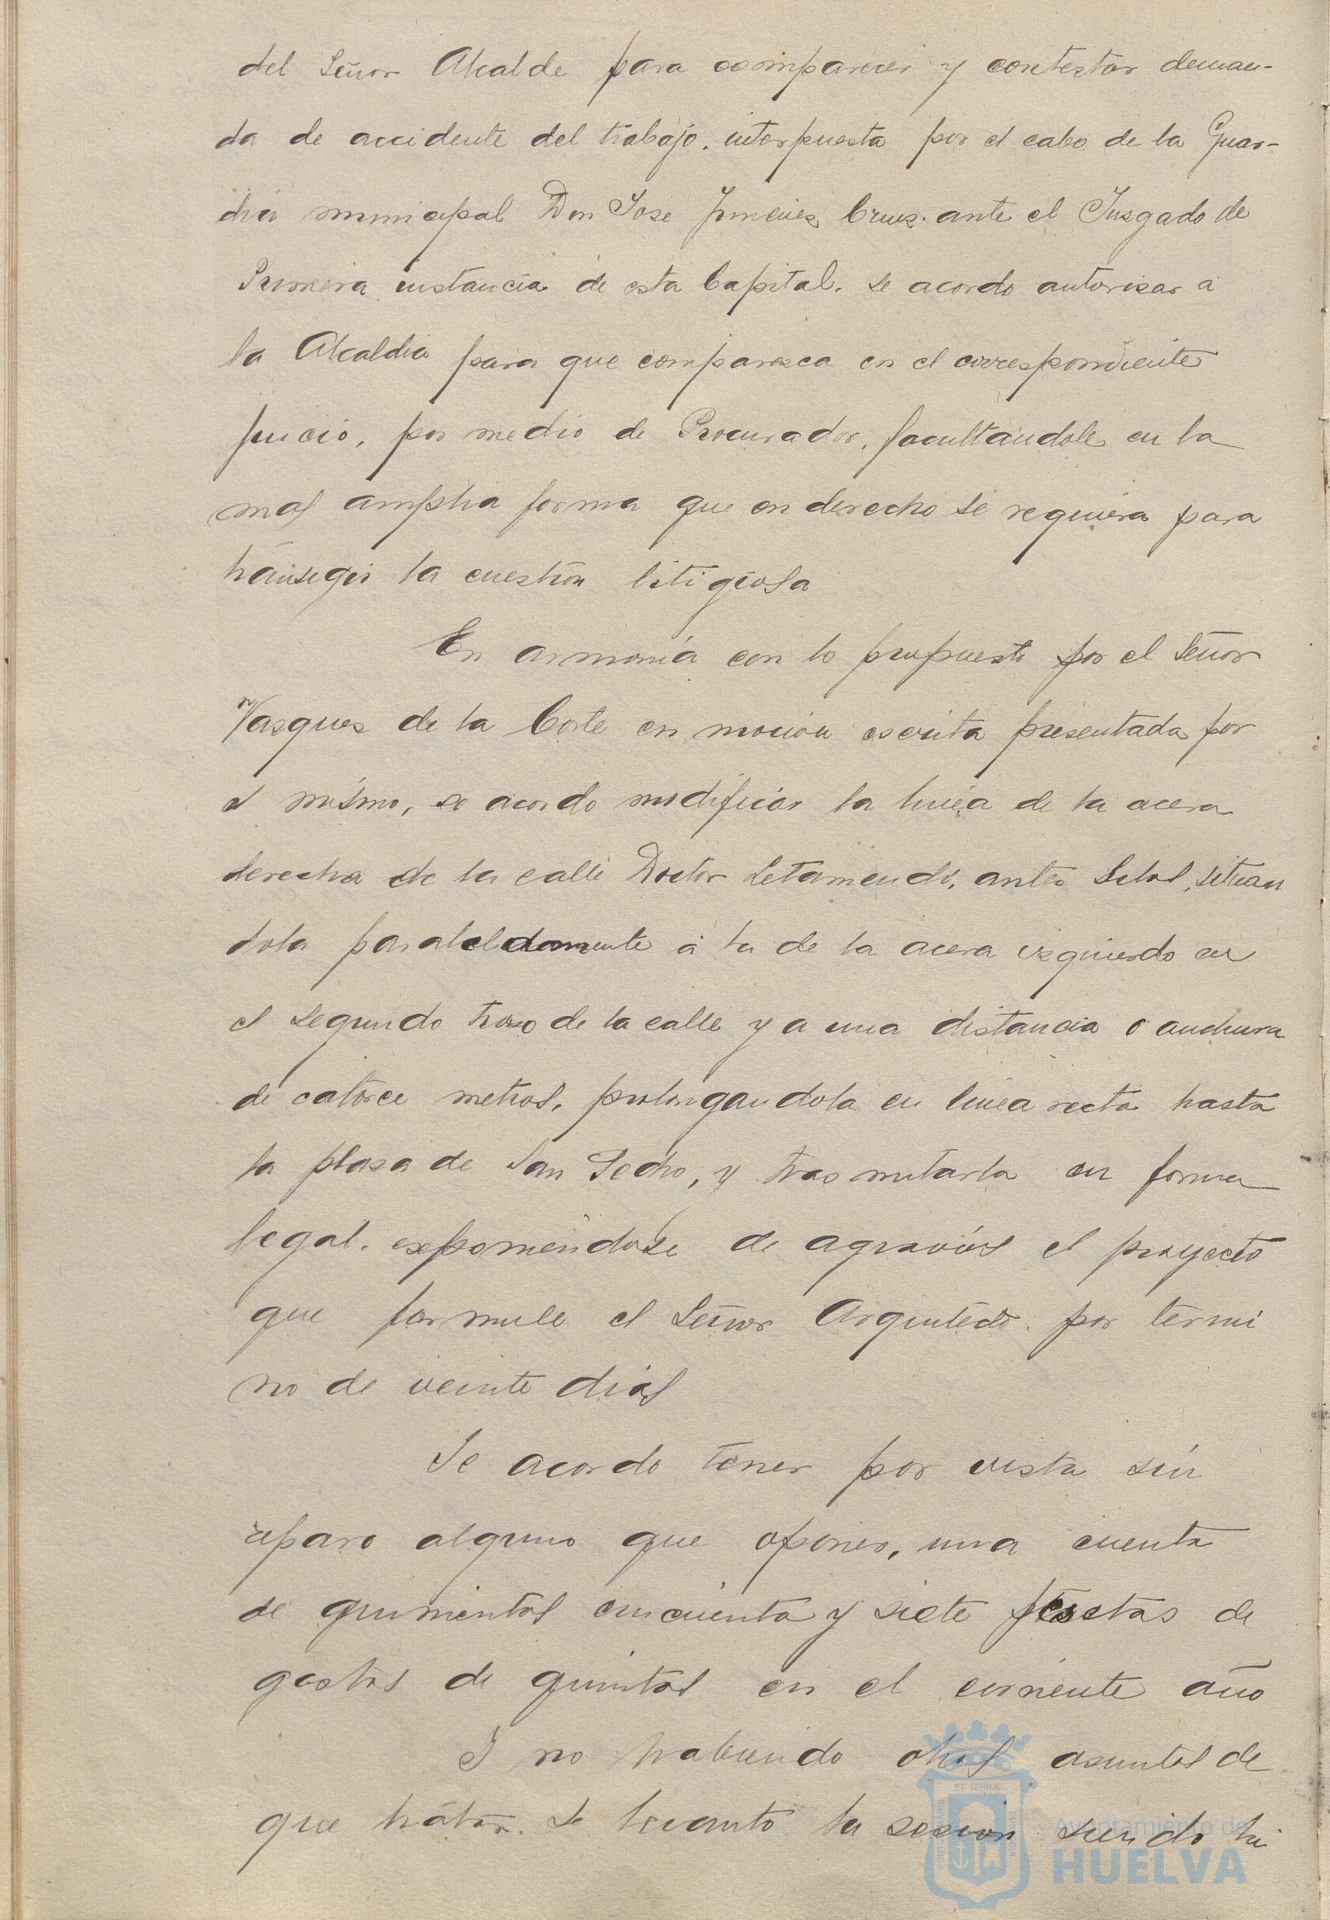 del Señor Alcalde para comparecer y contestar deman-
da de accidente del trabajo. interpuesta por el cabo de la Guar-
dia municipal Don Jose Jimenes Crus. ante el Jusgado de
Primera instancia de esta Capital. se acordo autorisar a
la Alcaldia para que comparesca en el correspondiente
juicio, por medio de Procurador, facultandole en la
mas amplia forma que en derecho se requiera para
transegir la cuestion litigiosa
En armonia con lo propuesto por el Señor
Vasques de la Corte en mocion escrita presentada por
el mismo, se acordo modificar la linea de la acera
derecha de la calle Doctor Letamendi, antes Silos, situan
dola paraleldamente a la de la acera izquierdo en
el segundo troso de la calle y a una distancia o anchura
de catorce metros, prolongandola en linea recta hasta
la plasa de San Pedro, y trasmitarla en forma
legal. exponiendose de agravios el proyecto
que formule el Señor Arquitecto. por termi
no de veinte dias
Se acordo tener por vista sin
reparo alguno que oponer, una cuenta
de quinientas cincuenta y siete pesetas de
gastos de quintas en el corriente año
I no habiendo otros asuntos de
que tratar. se levanto la sesion siendo la
Ayuntamiento de
HUELVA